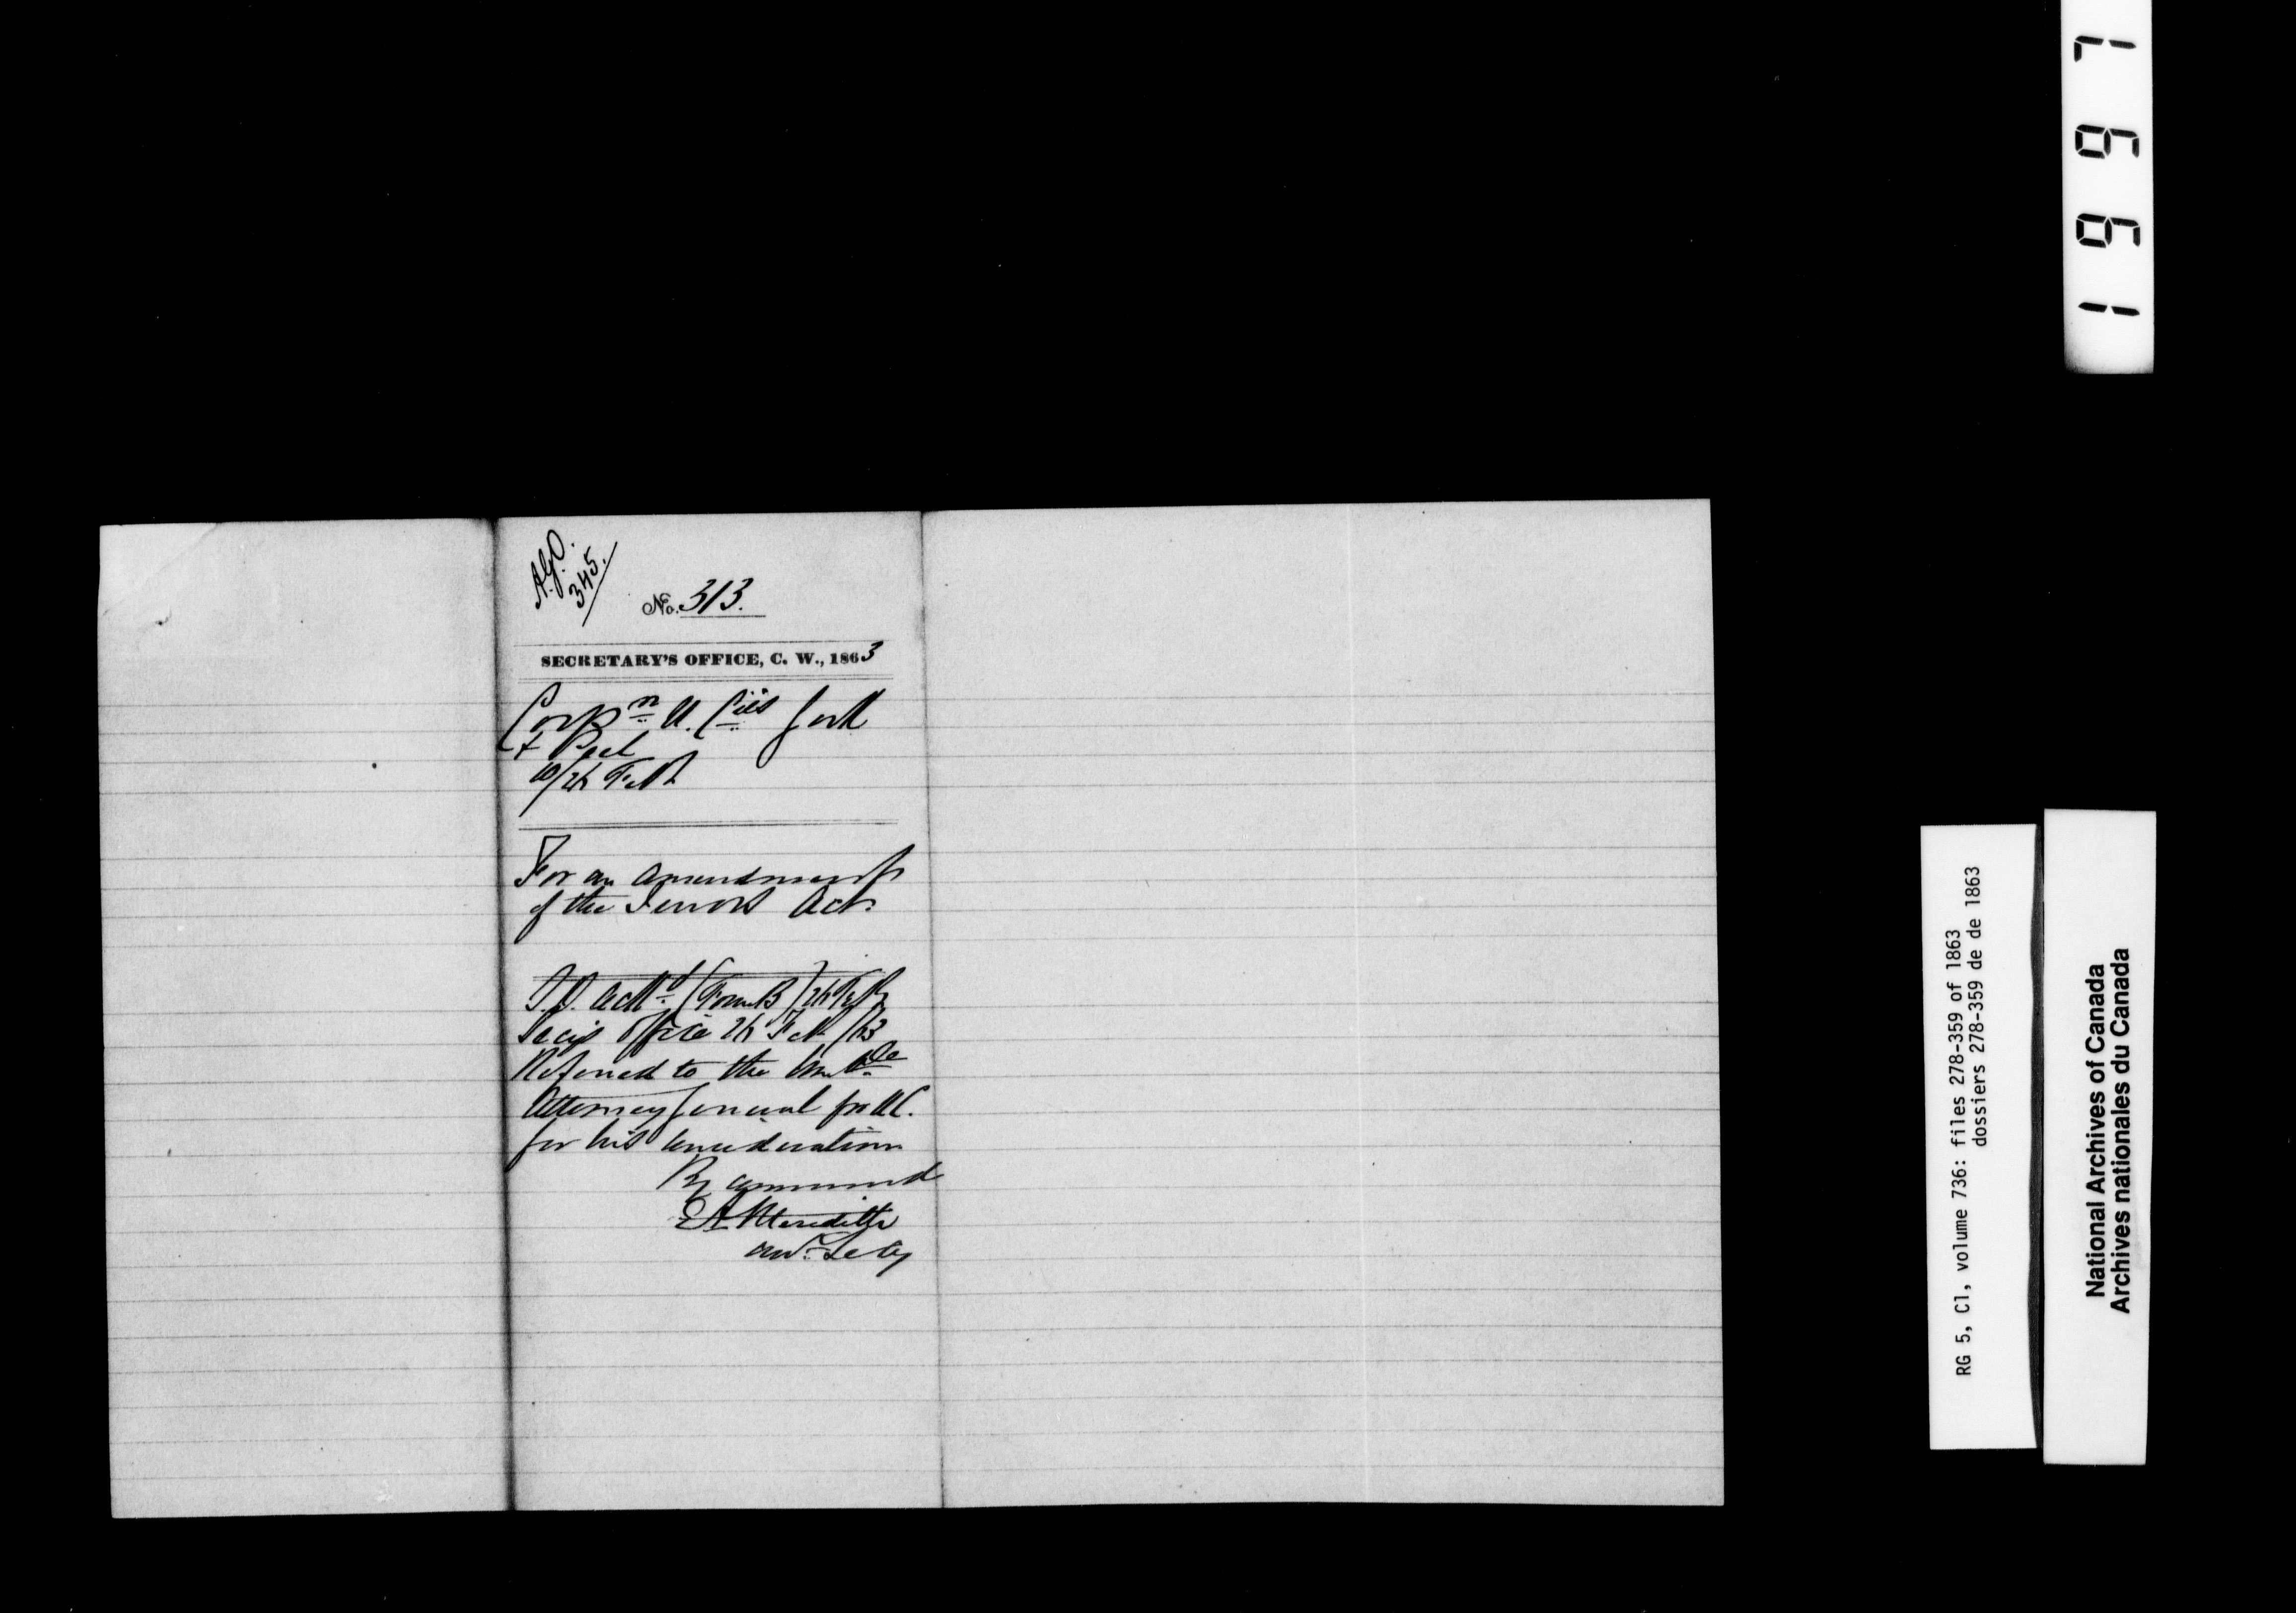 A.G.O.
345.
No. 313.
SECRETARY'S OFFICE, C. W., 1863
Corpn. U. Cies York
& Peel
10/24 Feb
For an amendment
of the Jurors Act.
Ackd. (Form B) 24 Feb
Secy's Office 24 Feb /63
Referred to the Honble
Attorney General for U.C.
for his consideration
By command
E A Meredith
Asst. Secy
1991
RG 5, C1, volume 736: files 278-359 of 1863
dossiers 278-359 de de 1863
National Archives of Canada
Archives nationales du Canada